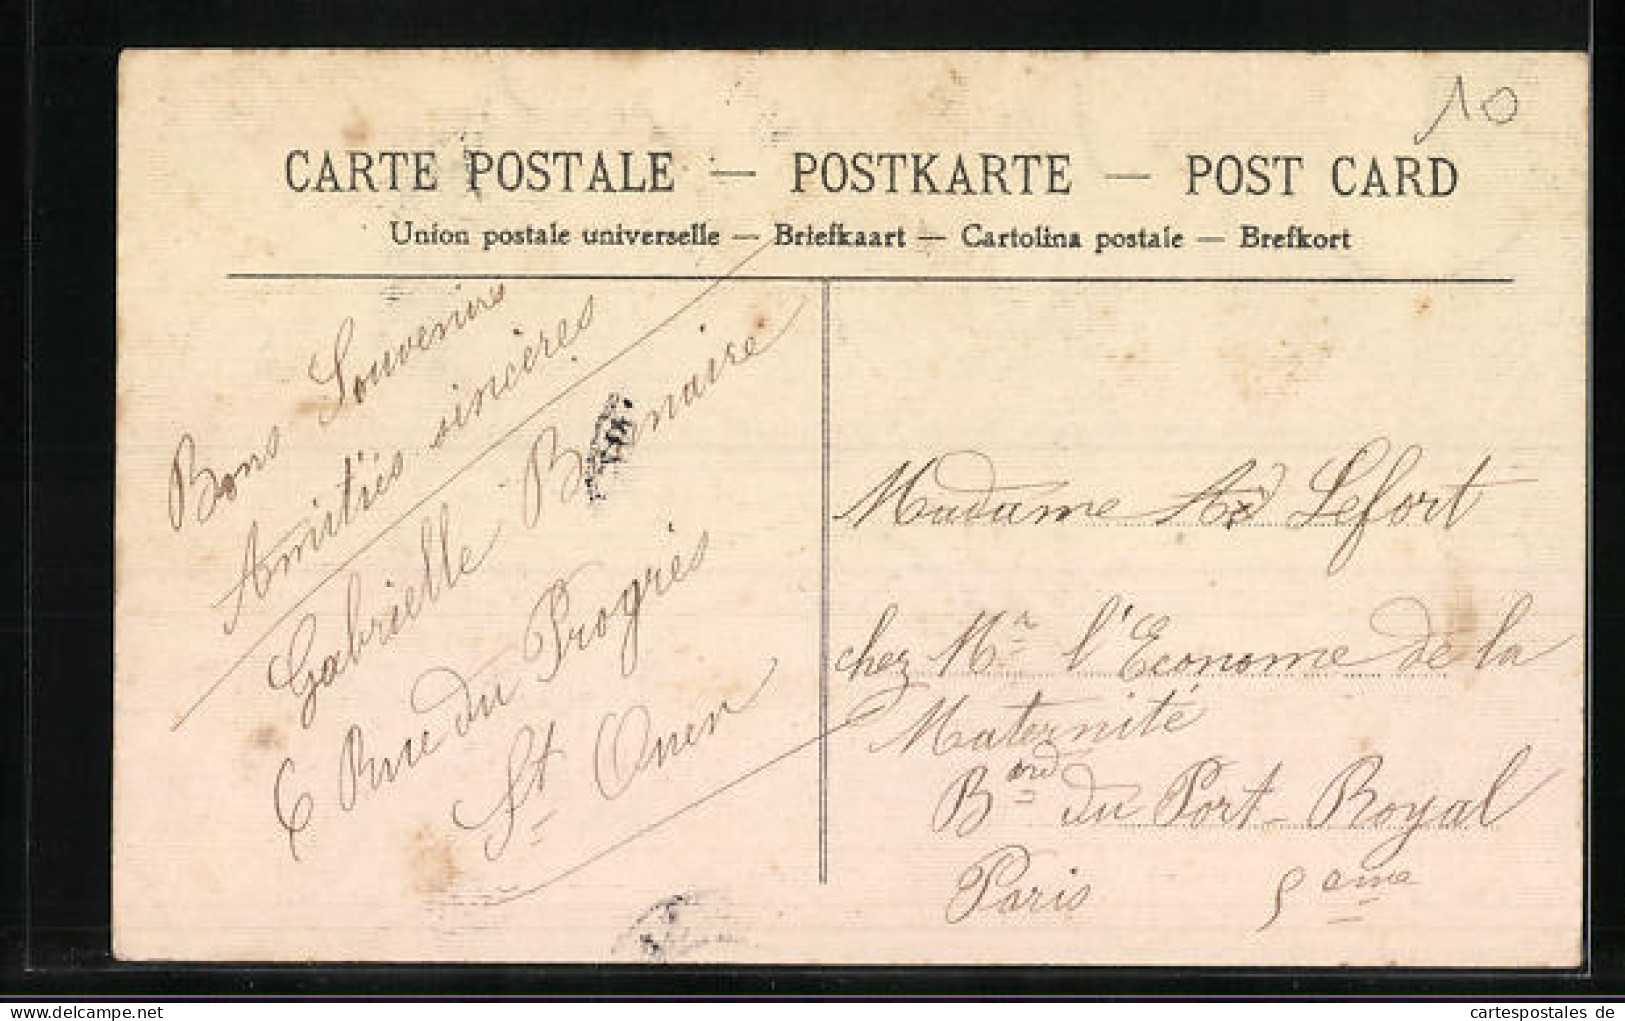 10
CARTE POSTALE — POSTKARTE — POST CARD
Union postale universelle — Briefkaart — Cartolina postale — Brefkort
Bons Souvenirs
Amitiés sincères
Gabrielle
6 Rue du Progrès
St Ouen
Madame Lefort
chez Mr l'Econome de la
Maternité
Bard du Port-Royal
Paris 5eme
cartespostales de